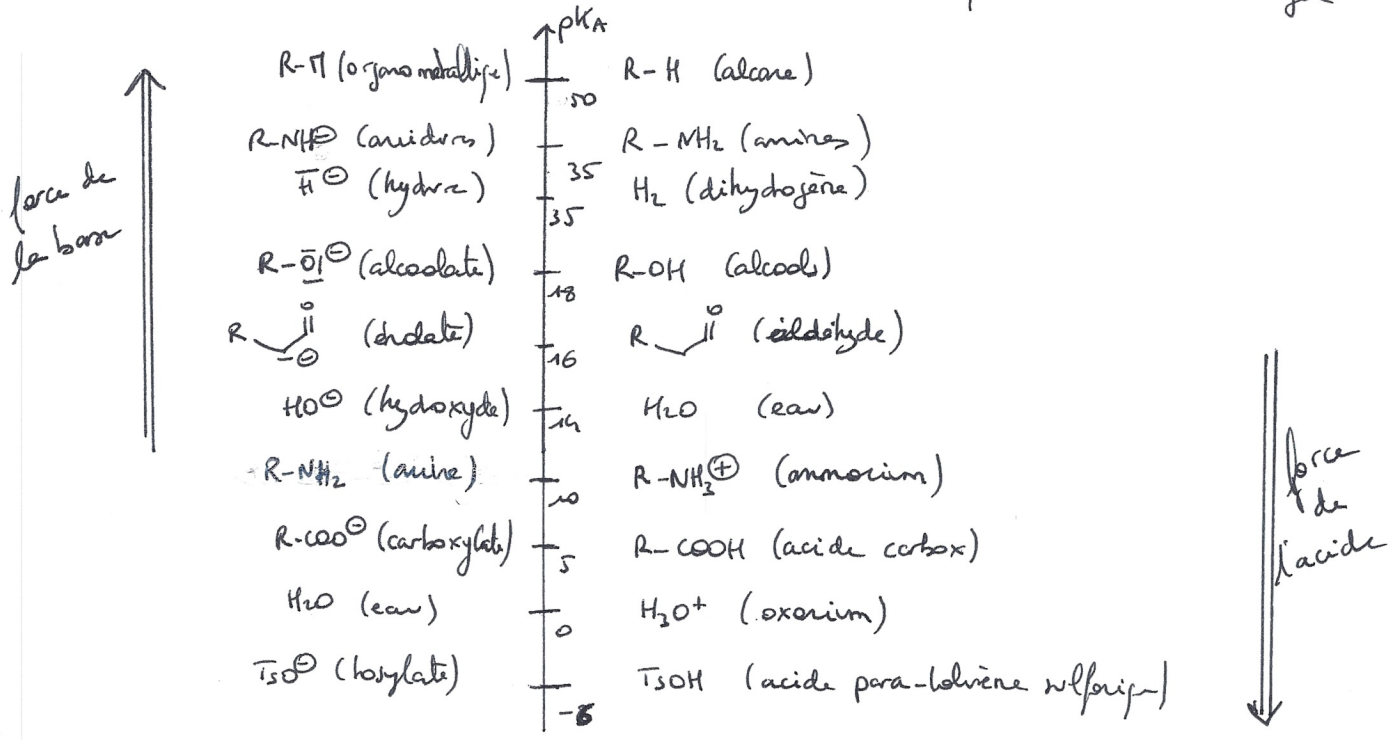 pKA
R-M (organométallique) 50 R-H (alcane)
R-NH⊖ (amidures) 35 R-NH2 (amines)
H⊖ (hydrure) 35 H2 (dihydrogène)
R-O⊖ (alcoolate) 18 R-OH (alcools)
R O ⊖ (énolate) 16 R O (aldéhyde)
HO⊖ (hydroxyde) 14 H2O (eau)
R-NH2 (amine) 10 R-NH3⊕ (ammonium)
R-COO⊖ (carboxylate) 5 R-COOH (acide carbox)
H2O (eau) 0 H3O+ (oxonium)
TsO⊖ (tosylate) -6 TSOH (acide para-toluène sulfonique)
force de
la base
force
de
l'acide